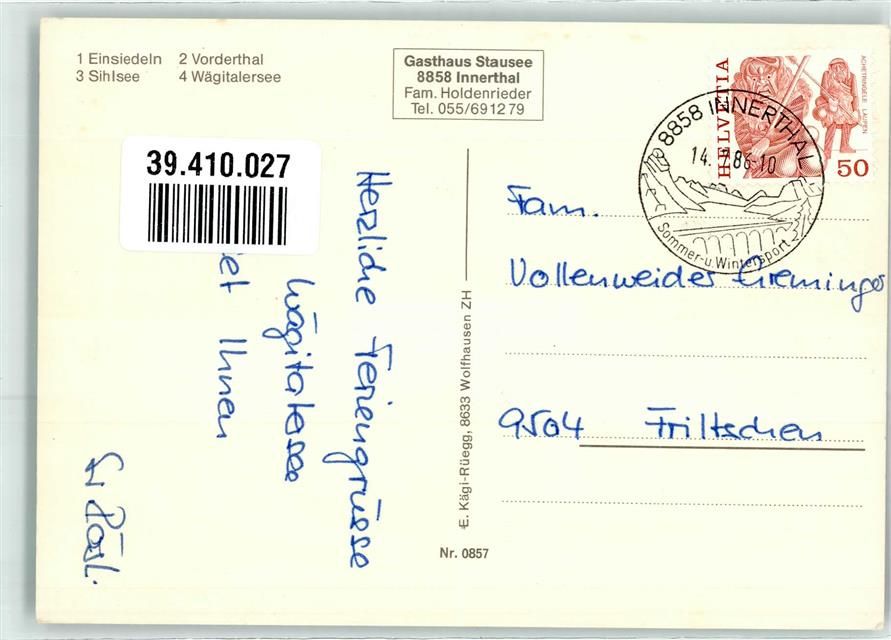 1 Einsiedeln 2 Vorderthal
3 Sihlsee 4 Wägitalersee
Gasthaus Stausee
8858 Innerthal
Fam. Holdenrieder
Tel. 055/69 12 79
HELVETIA
ACHETRINGELE LAUPEN
50
8858 INNERTHAL
14. 7.86-10
Sommer- u. Wintersport
39.410.027
Herzliche Feriengrüsse
Wägitalersee
et Ihnen
Fam.
Vollenweider Greminger
9504 Friltschen
E. Kägi-Rüegg, 8633 Wolfhausen ZH
Nr. 0857